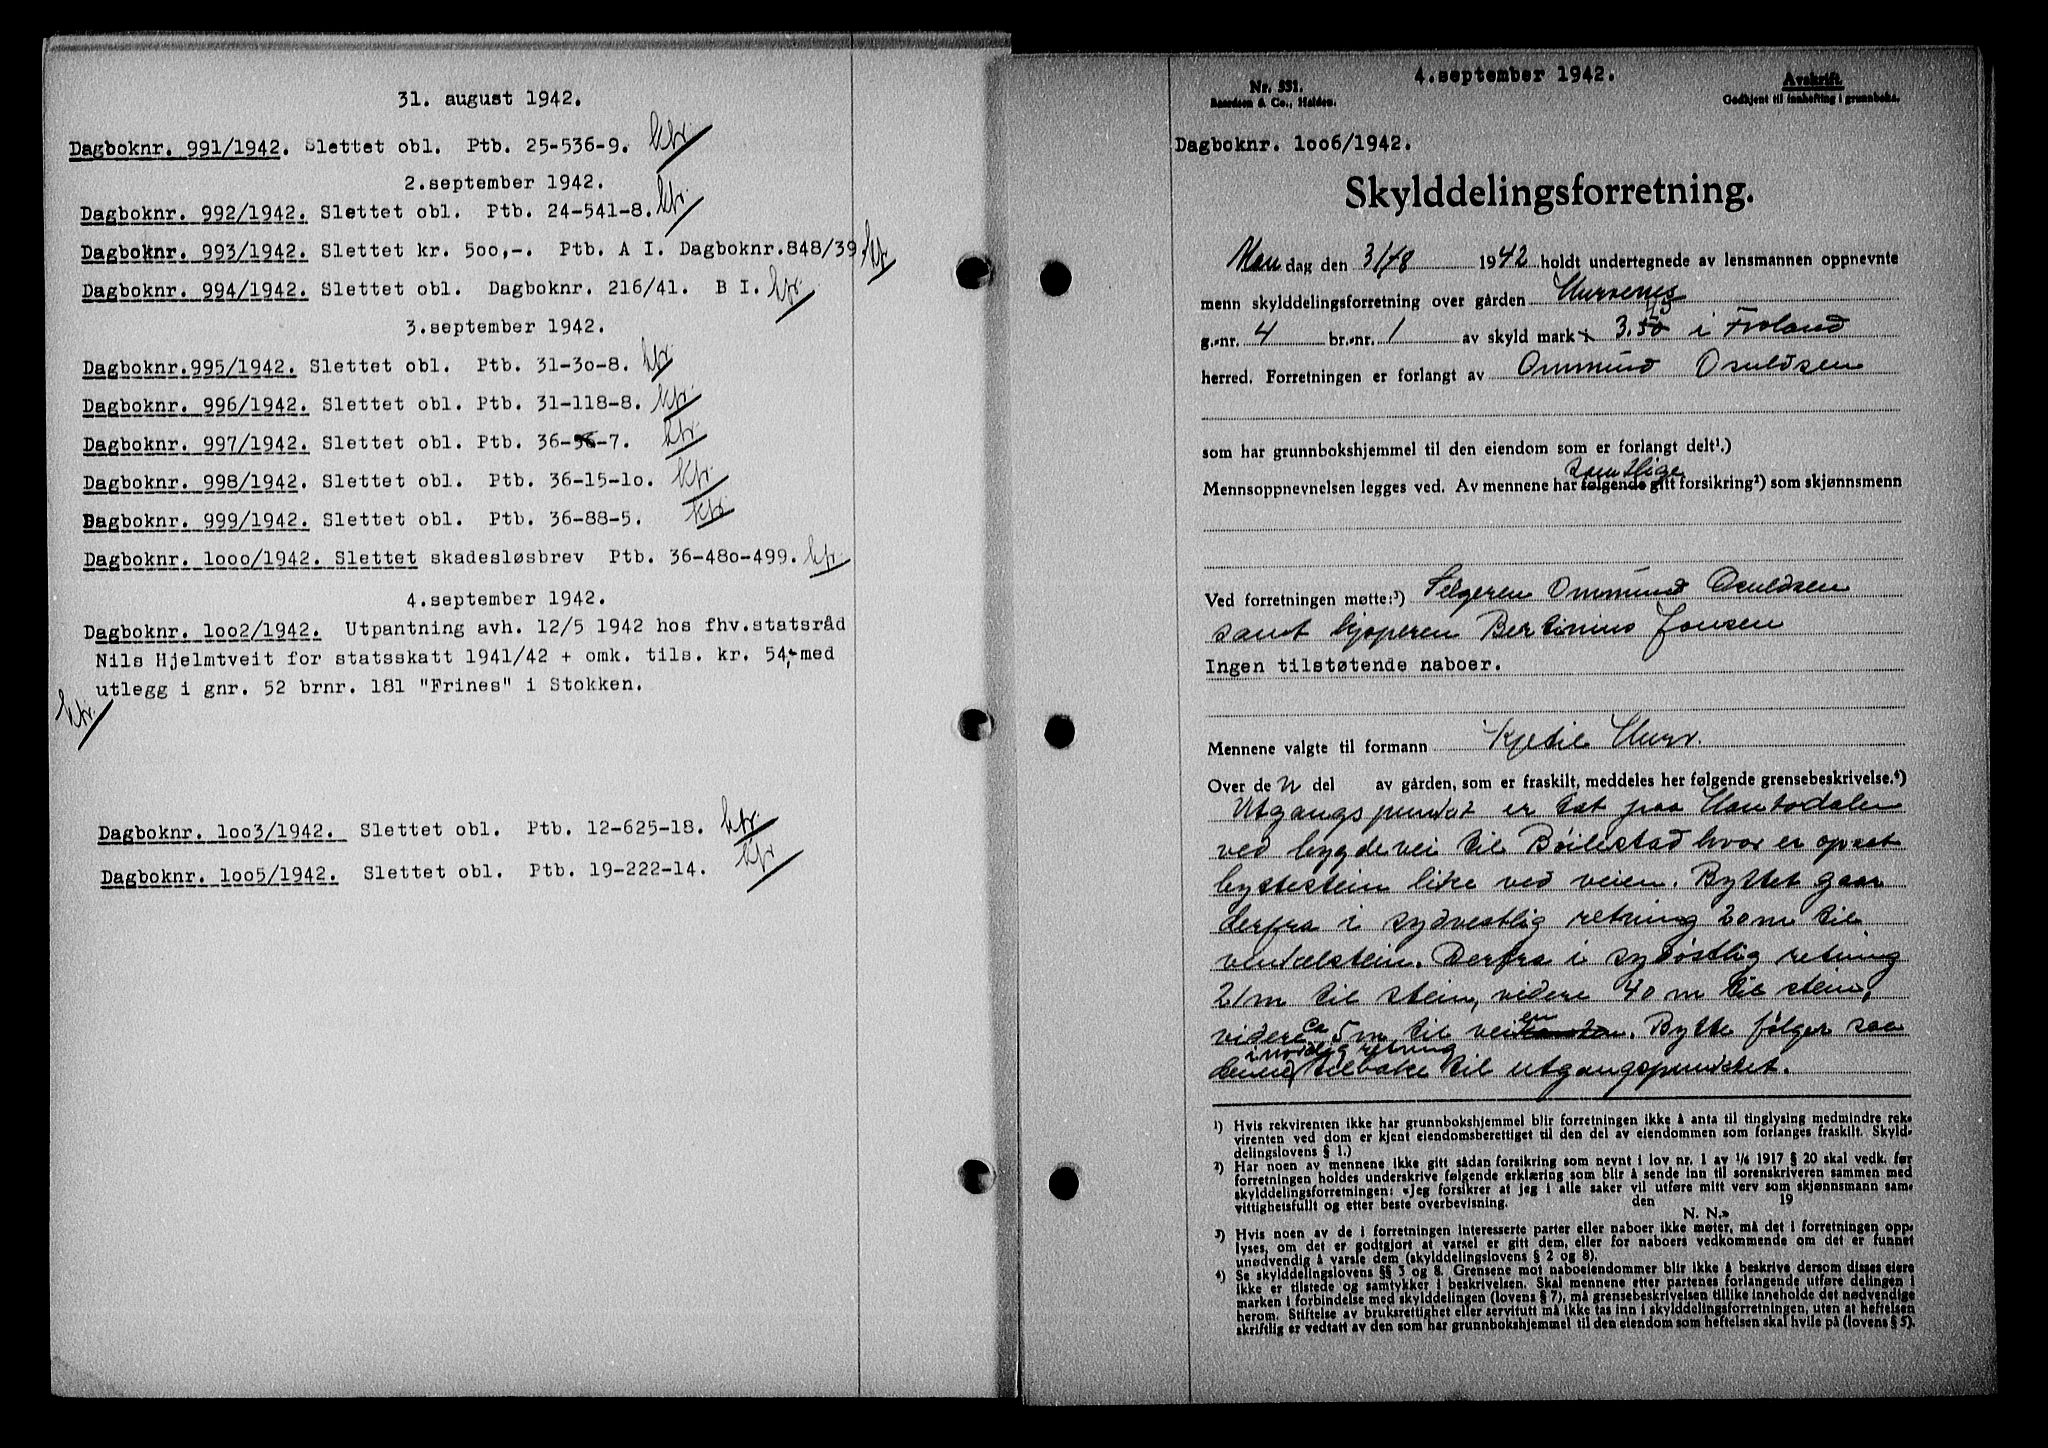 31. august 1942.
Dagboknr. 991/1942. Slettet obl. Ptb. 25-536-9. kfr.
2.september 1942.
Dagboknr. 992/1942. Slettet obl. Ptb. 24-541-8. kfr.
Dagboknr. 993/1942. Slettet kr. 500,-. Ptb. A I. Dagboknr.848/39. kfr
Dagboknr. 994/1942. Slettet obl. Dagboknr. 216/41. B I. kfr.
3.september 1942.
Dagboknr.995/1942. Slettet obl. Ptb. 31-30-8. kfr
Dagboknr. 996/1942. Slettet obl. Ptb. 31-118-8. kfr.
Dagboknr. 997/1942. Slettet obl. Ptb. 36-36-7. kfr.
Dagboknr. 998/1942. Slettet obl. Ptb. 36-15-10. kfr.
Dagboknr. 999/1942. Slettet obl. Ptb. 36-88-5. kfr
Dagboknr. 1000/1942. Slettet skadesløsbrev Ptb. 36-480-499. kfr.
4.september 1942.
Dagboknr. 1002/1942. Utpantning avh. 12/5 1942 hos fhv.statsråd
Nils Hjelmtveit for statsskatt 1941/42 + omk. tils. kr. 54,- med
utlegg i gnr. 52 brnr. 181 "Frines" i Stokken.
kfr.
Dagboknr. 1003/1942. Slettet obl. Ptb. 12-625-18. kfr.
Dagboknr. 1005/1942. Slettet obl. Ptb. 19-222-14. kfr
4.september 1942.
Nr. 531. Avskrift
Baardsen & Co., Halden. Godkjent til innhefting i grunnboka.
Dagboknr. 1006/1942.
Skylddelingsforretning.
Mandag den 31/8 1942 holdt undertegnede av lensmannen oppnevnte
menn skylddelingsforretning over gården Hurvenes
g.-nr. 4 br.-nr. 1 av skyld mark 3.50 i Froland
herred. Forretningen er forlangt av Ommund Osuldsen
som har grunnbokshjemmel til den eiendom som er forlangt delt¹.)
samtlige
Mennsoppnevnelsen legges ved. Av mennene har følgende gitt forsikring²) som skjønnsmenn
Ved forretningen møtte:³) Selgeren Ommund Osuldsen
samt kjøperen Bertinius Jonsen
Ingen tilstøtende naboer.
Mennene valgte til formann Kjetil Hurv.
Over de n del av gården, som er fraskilt, meddeles her følgende grensebeskrivelse.⁴)
Utgangspunktet er tat paa Hantodalen
ved bygdevei til Bøilestad hvor er opsat
byttestein like ved veien. Byttet gaar
derfra i sydvestlig retning 20 m til
stein. Derfra i sydøstlig retning
21 m til stein, videre 40 m til stein,
videre ca 5 m til veien. Bytte følger saa
i nordlig retning
denne tilbake til utgangspunktet.
¹) Hvis rekvirenten ikke har grunnbokshjemmel blir forretningen ikke å anta til tinglysing medmindre rek-
virenten ved dom er kjent eiendomsberettiget til den del av eiendommen som forlanges fraskilt. Skyld-
delingslovens § 1.)
²) Har noen av mennene ikke gitt sådan forsikring som nevnt i lov nr. 1 av 1/6 1917 § 20 skal vedk. før
forretningen holdes underskrive følgende erklæring som blir å sende inn til sorenskriveren sammen med
skylddelingsforretningen: «Jeg forsikrer at jeg i alle saker vil utføre mitt verv som skjønnsmann sam-
vittighetsfullt og etter beste overbevisning. den 19
N. N.»
³) Hvis noen av de i forretningen interesserte parter eller naboer ikke møter, må det i forretningen opp-
lyses, om det er godtgjort at varsel er gitt dem, eller for naboers vedkommende om det er funnet
unødvendig å varsle dem (skylddelingslovens § 2 og 8).
⁴) Se skylddelingslovens §§ 3 og 8. Grensene mot naboeiendommer blir ikke å beskrive dersom disses eiere
ikke er tilstede og samtykker i beskrivelsen. Skal mennene etter partenes forlangende utføre delingen i
marken i forbindelse med skylddelingen (lovens § 7), må grensebeskrivelsen tillike inneholde det nødvendige
herom. Stiftelse av bruksrettighet eller servitutt må ikke tas inn i skylddelingsforretningen, uten at heftelsen
skriftlig er vedtatt av den som har grunnbokshjemmel til den eiendom som heftelsen skal hvile på (lovens § 5).